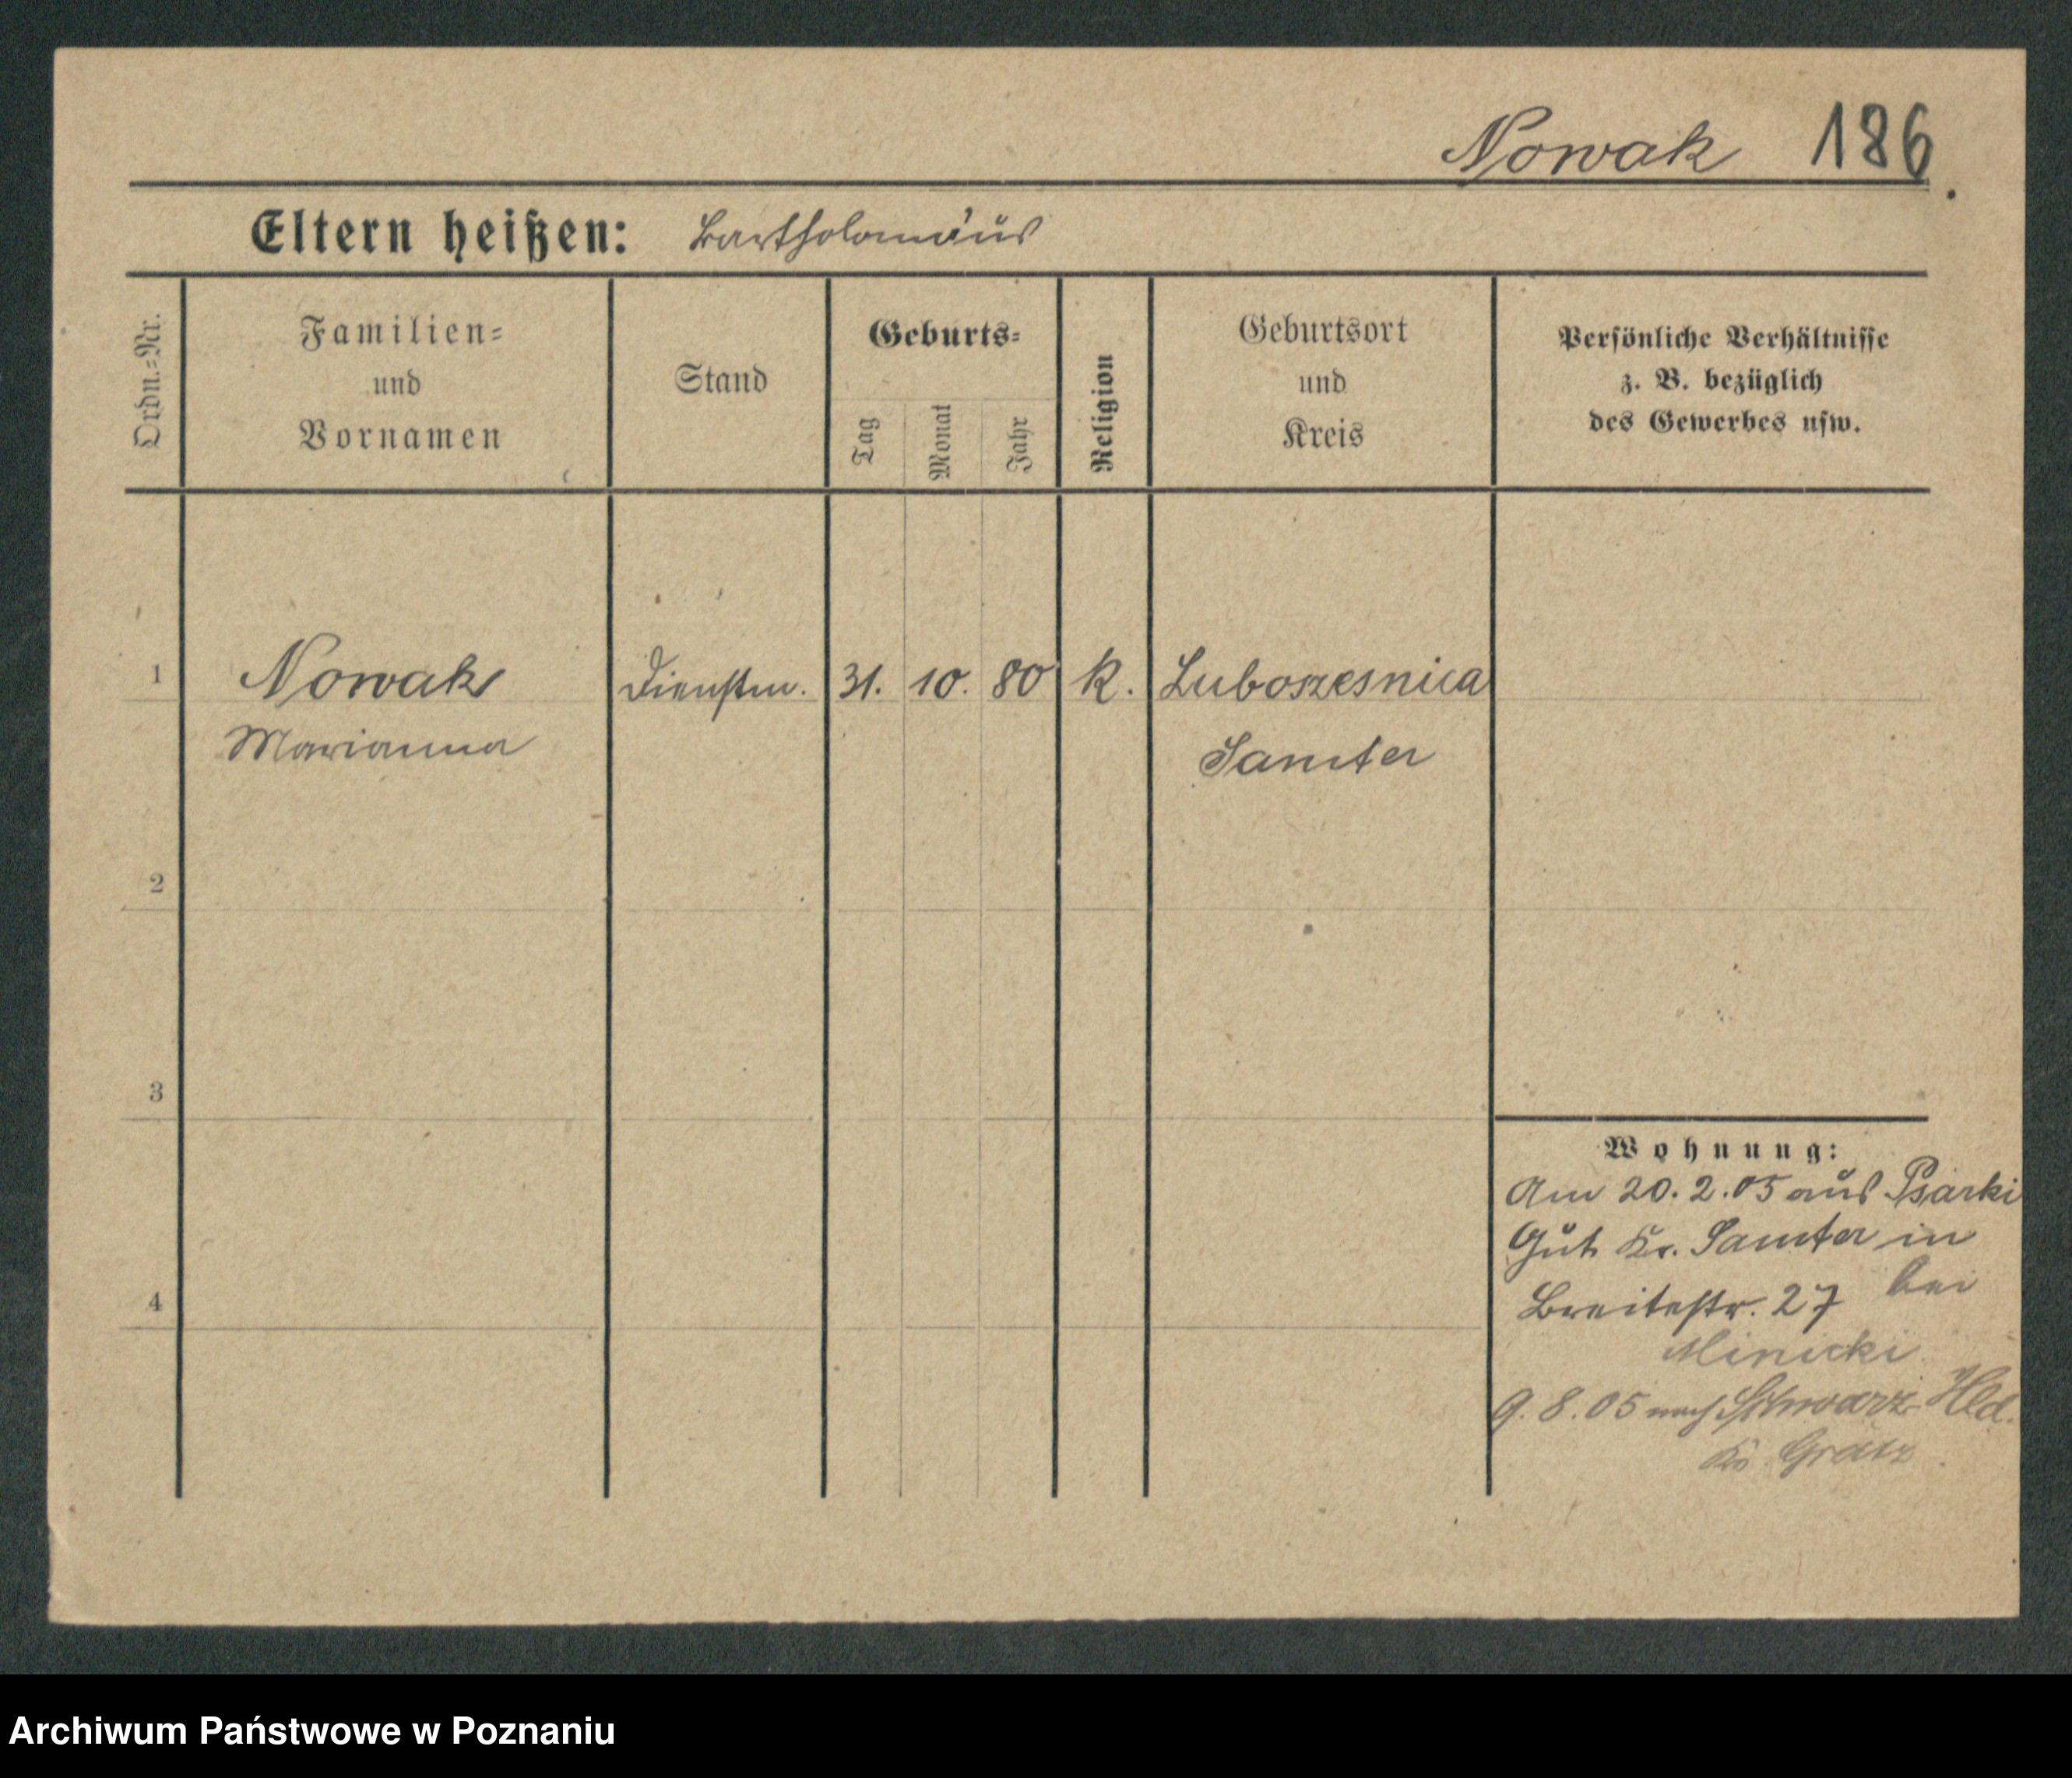 Nowak 186.
Eltern heißen: Bartholomäus
Ordn.-Nr.
Familien-
und
Vornamen
Stand
Geburts-
Tag
Monat
Jahr
Religion
Geburtsort
und
Kreis
Persönliche Verhältnisse
z. B. bezüglich
des Gewerbes usw.
1 Nowak Dienstm. 31. 10. 80 K. Luboszesnica
Marianna Samter
2
3
4
Wohnung:
Am 20.2.05 aus Psarki
Gut Kr. Samter in
Breitestr. 27 bei
Minicki
9.8.05 nach Schwarz Hld.
Kr. Grätz
Archiwum Państwowe w Poznaniu